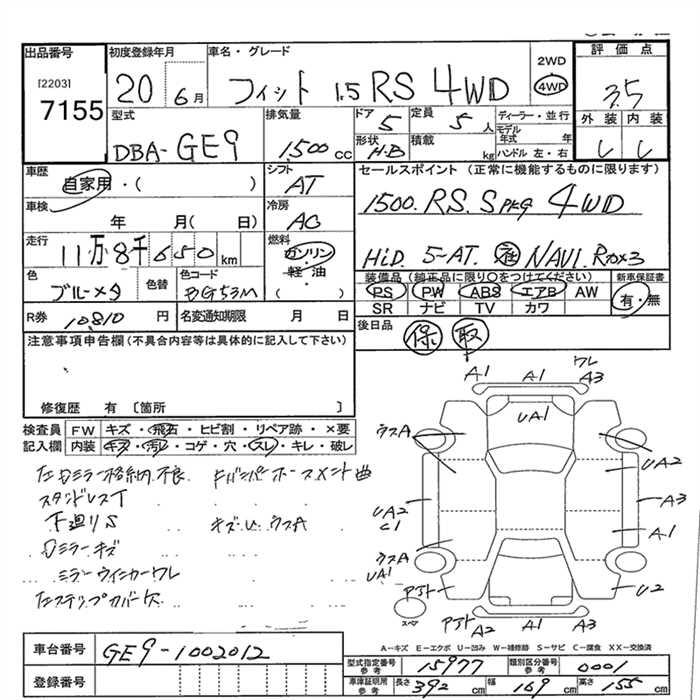 出品番号
[2203]
7155
初度登録年月
20 6月
車名・グレード
フィット 1.5 RS 4WD
2WD
4WD
評価点
3.5
外装 内装
型式
DBA-GE9
排気量
1500cc
ドア
5
定員
5人
ディーラー・並行
モデル年式 年
ハンドル 左・右
形状
H.B
積載
kg
車歴
自家用・( )
シフト
AT
セールスポイント (正常に機能するものに限ります)
1500. RS. S pkg 4WD
HiD. 5-AT. NAVI.
車検
年 月( 日)
冷房
AC
走行
11万8千650km
燃料
ガソリン
軽・油
( )
色
ブルーメタ
色替
色コード
BG53M
装備品 (純正品に限り○をつけてください)
PS PW ABS エアB AW
SR ナビ TV カワ
新車保証書
有・無
R券 10,810円
名変通知期限 月 日
後日品
保 取
注意事項申告欄(不具合内容等は具体的に記入して下さい)
修復歴 有〔箇所 〕
検査員
記入欄
FW キズ・飛石・ヒビ割・リペア跡・×要
内装 キズ・汚レ・コゲ・穴・スレ・キレ・破レ
左Dミラー格納不良
スタンドレスT
下廻りS
キズU ウスA
Dミラーキズ
ミラーウインカーワレ
左ステップカバー欠
ワレ
A1 A1 A3
UA1
ウスA
UA2
UA2
C1
A3
A1
ウスA
UA1
U2
スペア
A2 A1 A3
A-キズ E-エクボ U-凹み W-補修跡 S-サビ C-腐食 XX-交換済
車台番号
GE9-1002012
登録番号
型式指定番号参考
15977
類別区分番号参考
0001
車庫証明用参考
長さ 392cm
幅 169cm
高さ 155cm